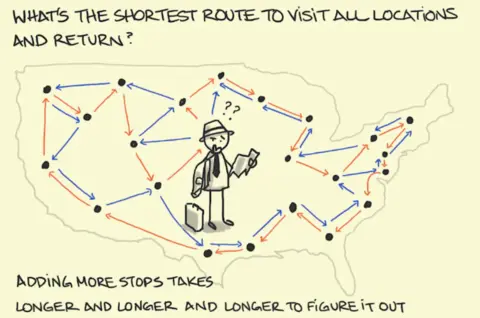 WHAT'S THE SHORTEST ROUTE TO VISIT ALL LOCATIONS
AND RETURN?
??
ADDING MORE STOPS TAKES
LONGER AND LONGER AND LONGER TO FIGURE IT OUT